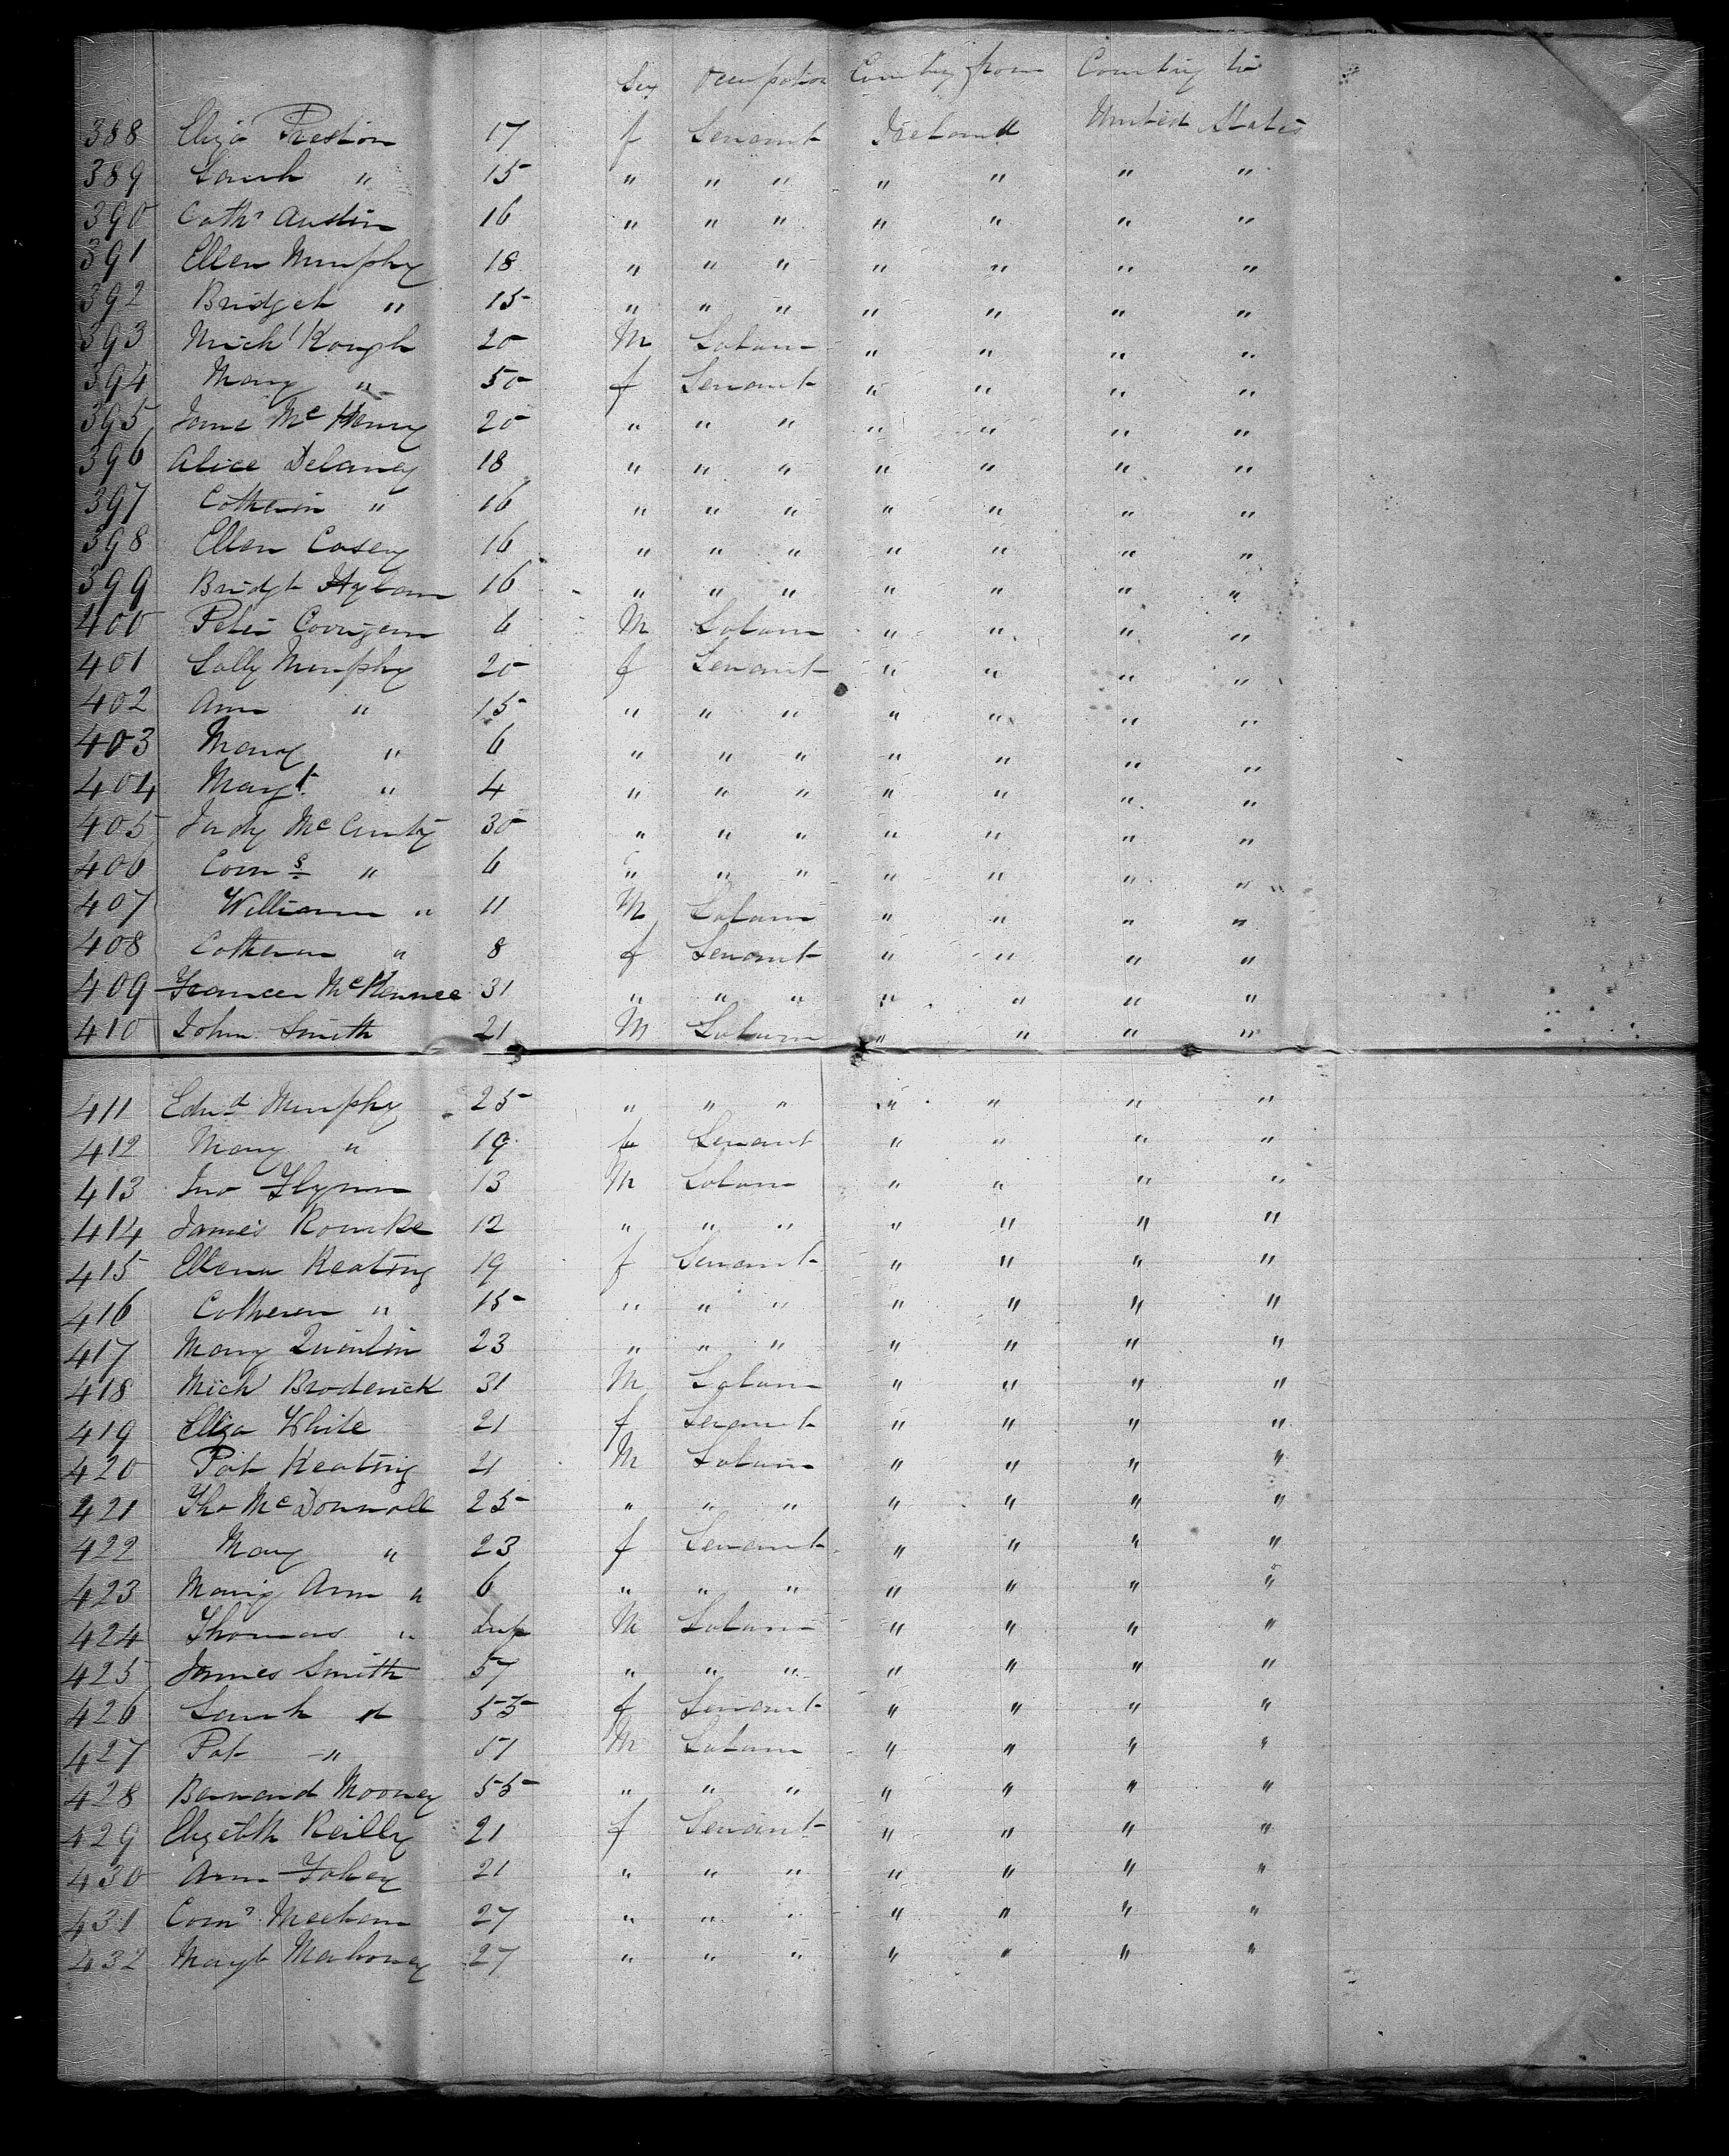 Sex Occupation Country from Country to
388 Eliza Preston 17 f Servant Ireland United States
389 Sarah " 15 " " " " " " "
390 Cath' Austin 16 " " " " " " "
391 Ellen Murphy 18 " " " " " " "
392 Bridget " 15 " " " " " " "
393 Mich'l Keough 20 M Labourer " " " "
394 Mary " 50 f Servant " " " "
395 Jane McHenry 20 " " " " " " "
396 Alice Delaney 18 " " " " " " "
397 Catherin " 16 " " " " " " "
398 Ellen Casey 16 " " " " " " "
399 Bridgt Hyland 16 " " " " " " "
400 Peter Corrigan 6 M Labourer " " " "
401 Sally Murphy 20 f Servant " " " "
402 Ann " 15 " " " " " " "
403 Mary " 6 " " " " " " "
404 Margt " 4 " " " " " " "
405 Judy McCarty 30 " " " " " " "
406 Corns " 6 " " " " " " "
407 William " 11 M Labourer " " " "
408 Catheren " 8 f Servant " " " "
409 Frances McKennee 31 " " " " " " "
410 John Smith 21 M Labourer " " " "
411 Edwd Murphy 25 " " " " " " "
412 Mary " 19 f Servant " " " "
413 Jno Flynn 13 M Labourer " " " "
414 James Rourke 12 " " " " " " "
415 Ellena Keating 19 f Servant " " " "
416 Catheren " 15 " " " " " " "
417 Mary Quinlin 23 " " " " " " "
418 Mich' Broderick 31 M Labourer " " " "
419 Eliza White 21 f Servant " " " "
420 Pat Keating 21 M Labourer " " " "
421 Tho McDonnell 25 " " " " " " "
422 Mary " 23 f Servant " " " "
423 Mary Ann " 6 " " " " " " "
424 Thomas " Inf M Labourer " " " "
425 James Smith 57 " " " " " " "
426 Sarah " 55 f Servant " " " "
427 Pat " 51 M Labourer " " " "
428 Bernard Mooney 55 " " " " " " "
429 Elizebth Reilly 21 f Servant " " " "
430 Ann Fahey 21 " " " " " " "
431 Corns Meehan 27 " " " " " " "
432 Margt Mahoney 27 " " " " " " "